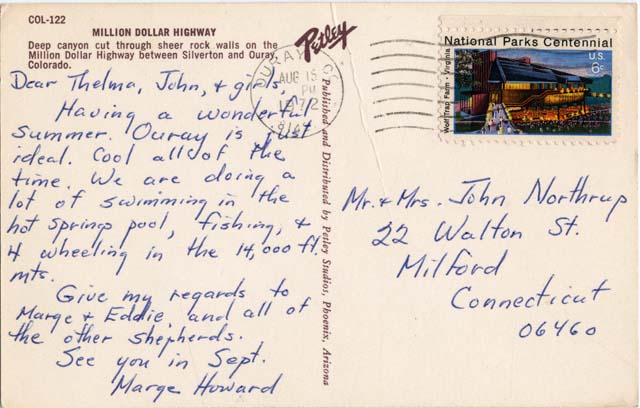 COL-122
MILLION DOLLAR HIGHWAY
Deep canyon cut through sheer rock walls on the
Million Dollar Highway between Silverton and Ouray,
Colorado.
Petley
Published and Distributed by Petley Studios, Phoenix, Arizona
OURAY, CO
AUG 15
PM
1972
National Parks Centennial
U.S.
6c
Wolf Trap Farm - Virginia
Dear Thelma, John, & girls,
Having a wonderful
summer. Ouray is just
ideal. Cool all of the
time. We are doing a
lot of swimming in the
hot springs pool, fishing, &
4 wheeling in the 14,000 ft.
mts.
Give my regards to
Marge & Eddie, and all of
the other Shepherds.
See you in Sept.
Marge Howard
Mr. & Mrs. John Northrup
22 Walton St.
Milford
Connecticut
06460